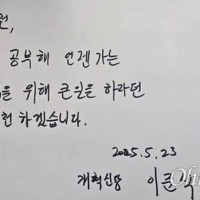 공부해 언젠가는
위해 큰일을 하라던
하겠습니다.
2025.5.23
개혁신당 이준